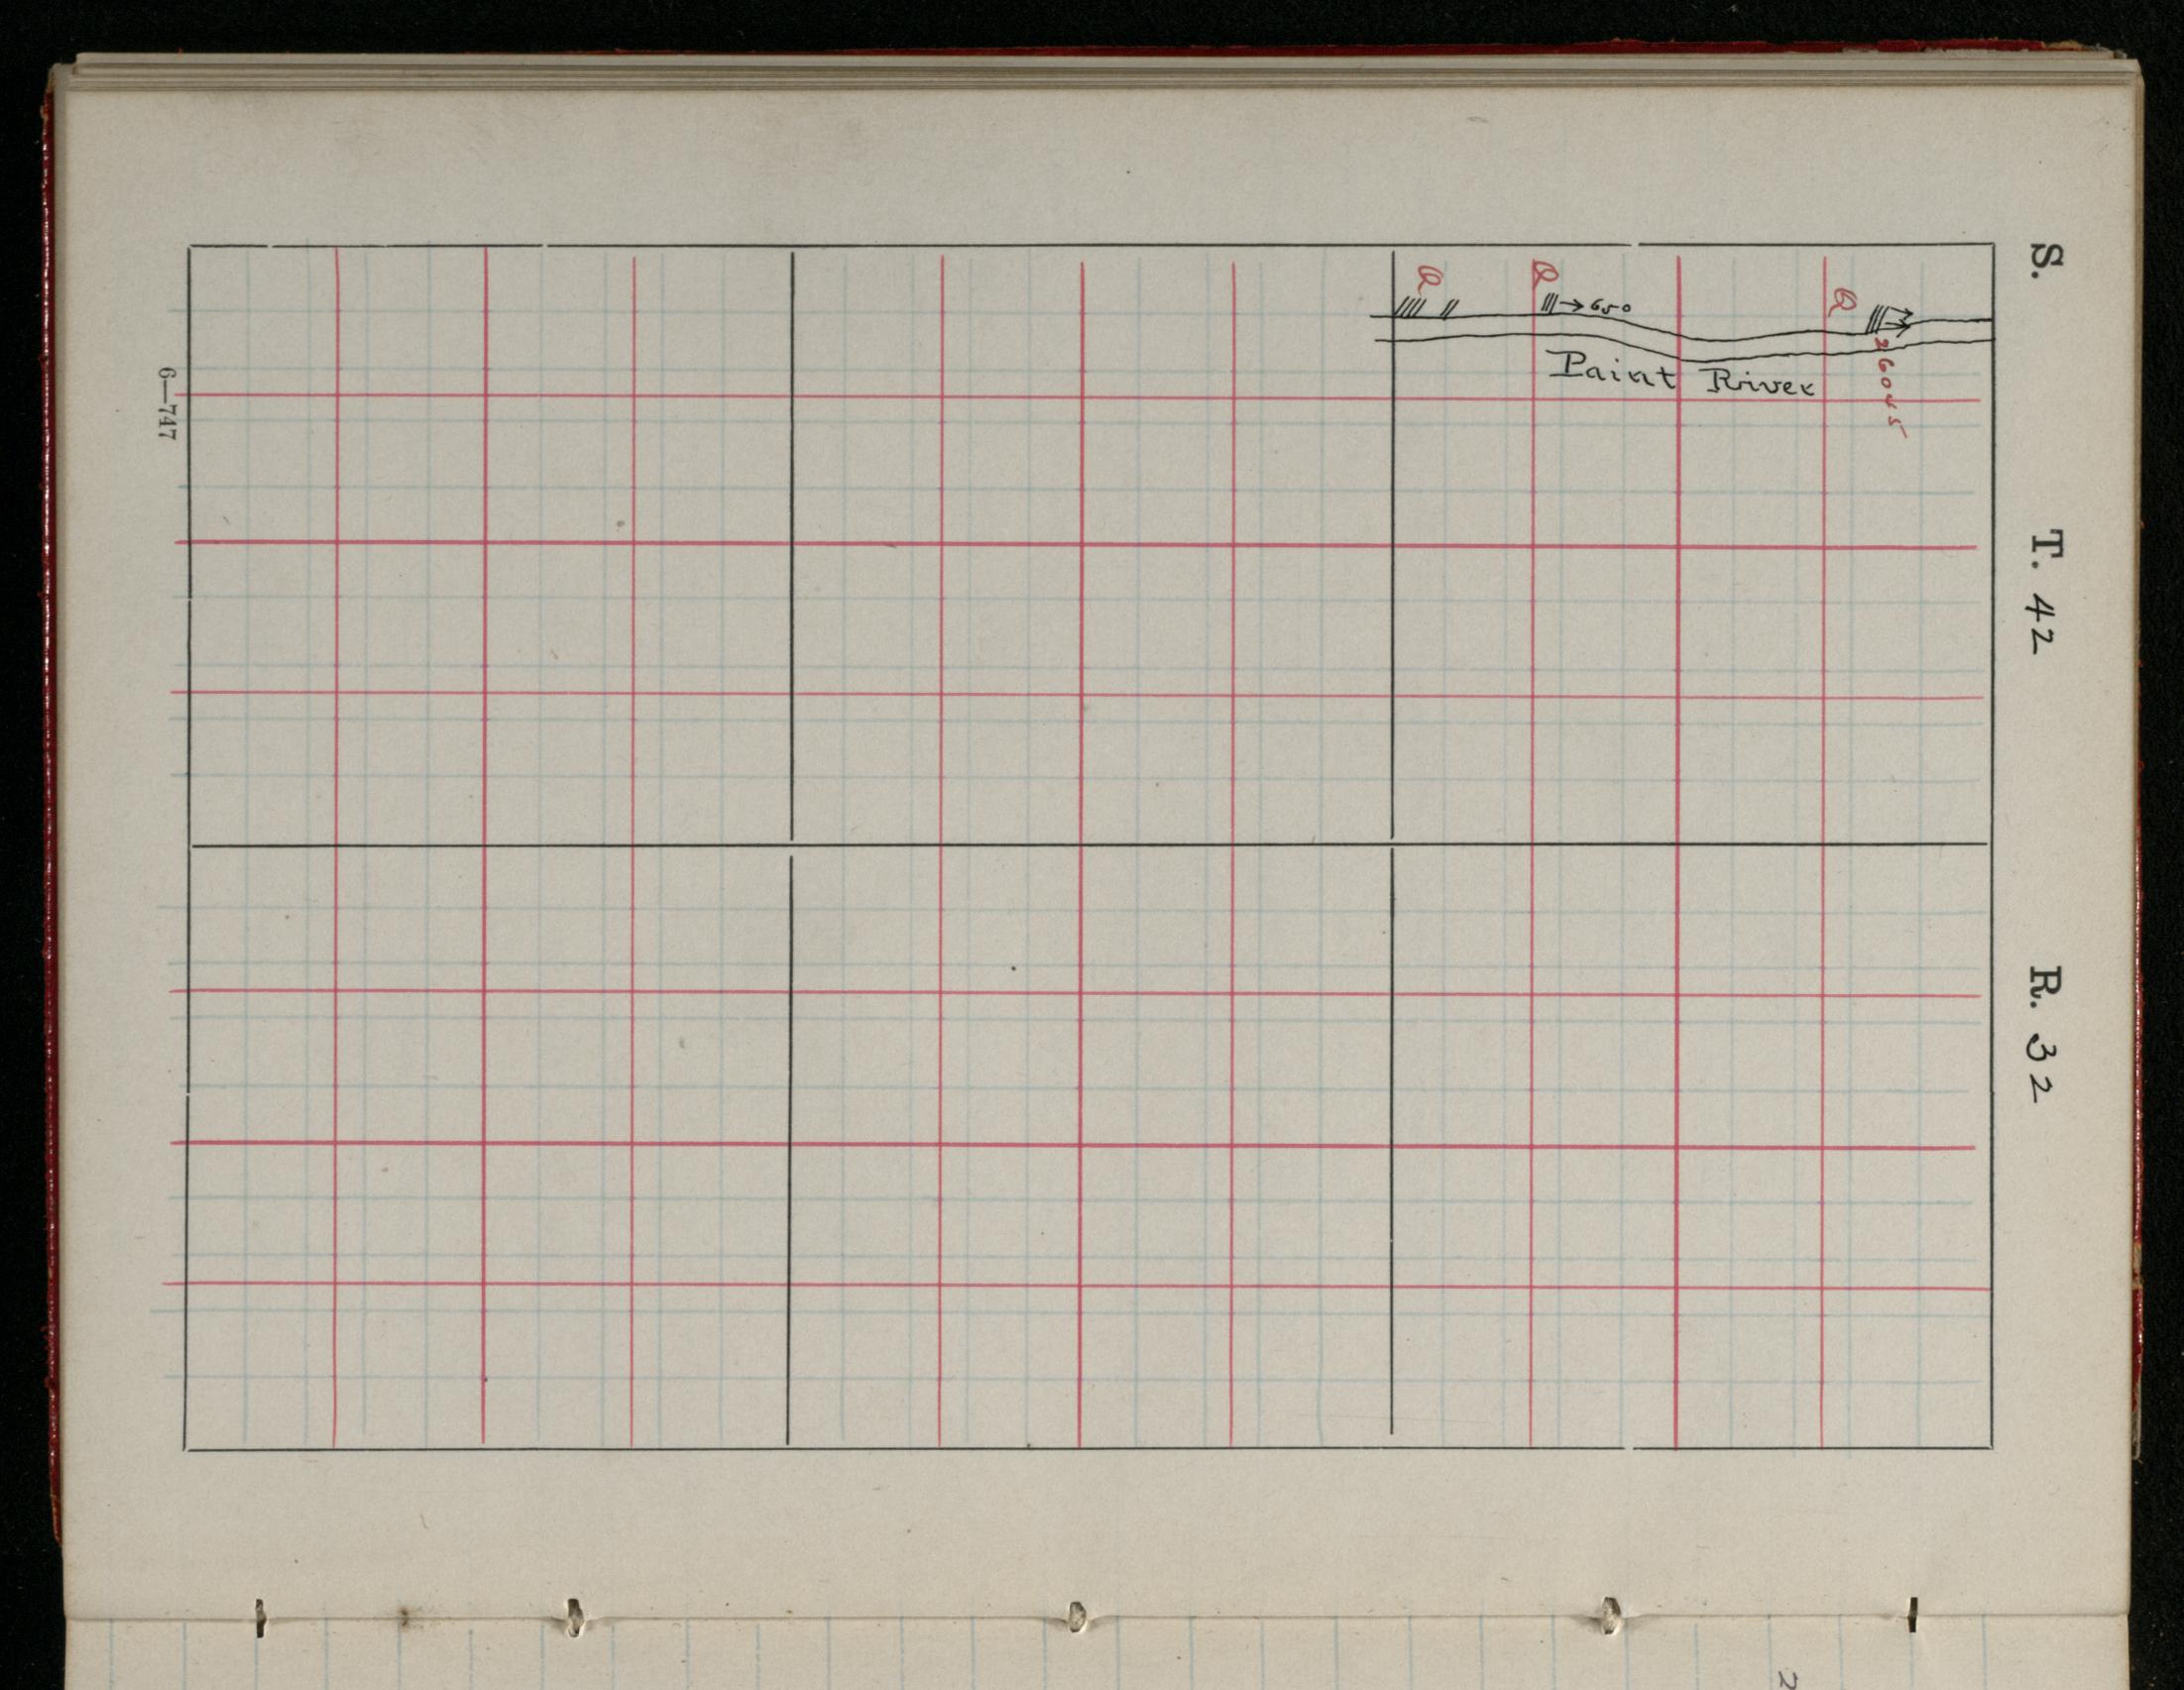 S. T. 42 R. 32
Q Q Q
→650
Paint River
26045
6—747
2